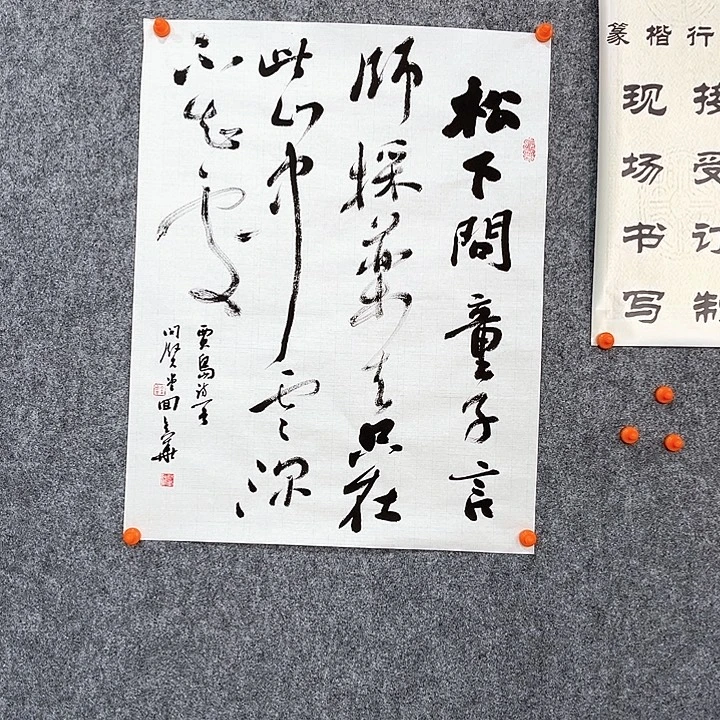 篆楷行
现场书写
接受订制
松下問童子言
師採藥去只在
此山中雲深
不知處
賈島詩